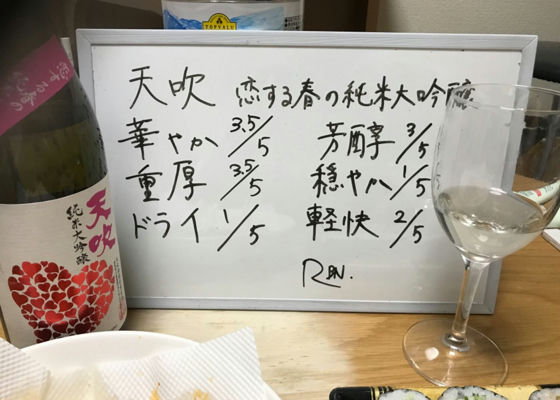 TOPVALU
恋する春の
天吹 恋する春の純米大吟醸
華やか 3.5/5 芳醇 3/5
重厚 3.5/5 穏やか 1/5
ドライ 1/5 軽快 2/5
REN.
天吹
純米大吟醸